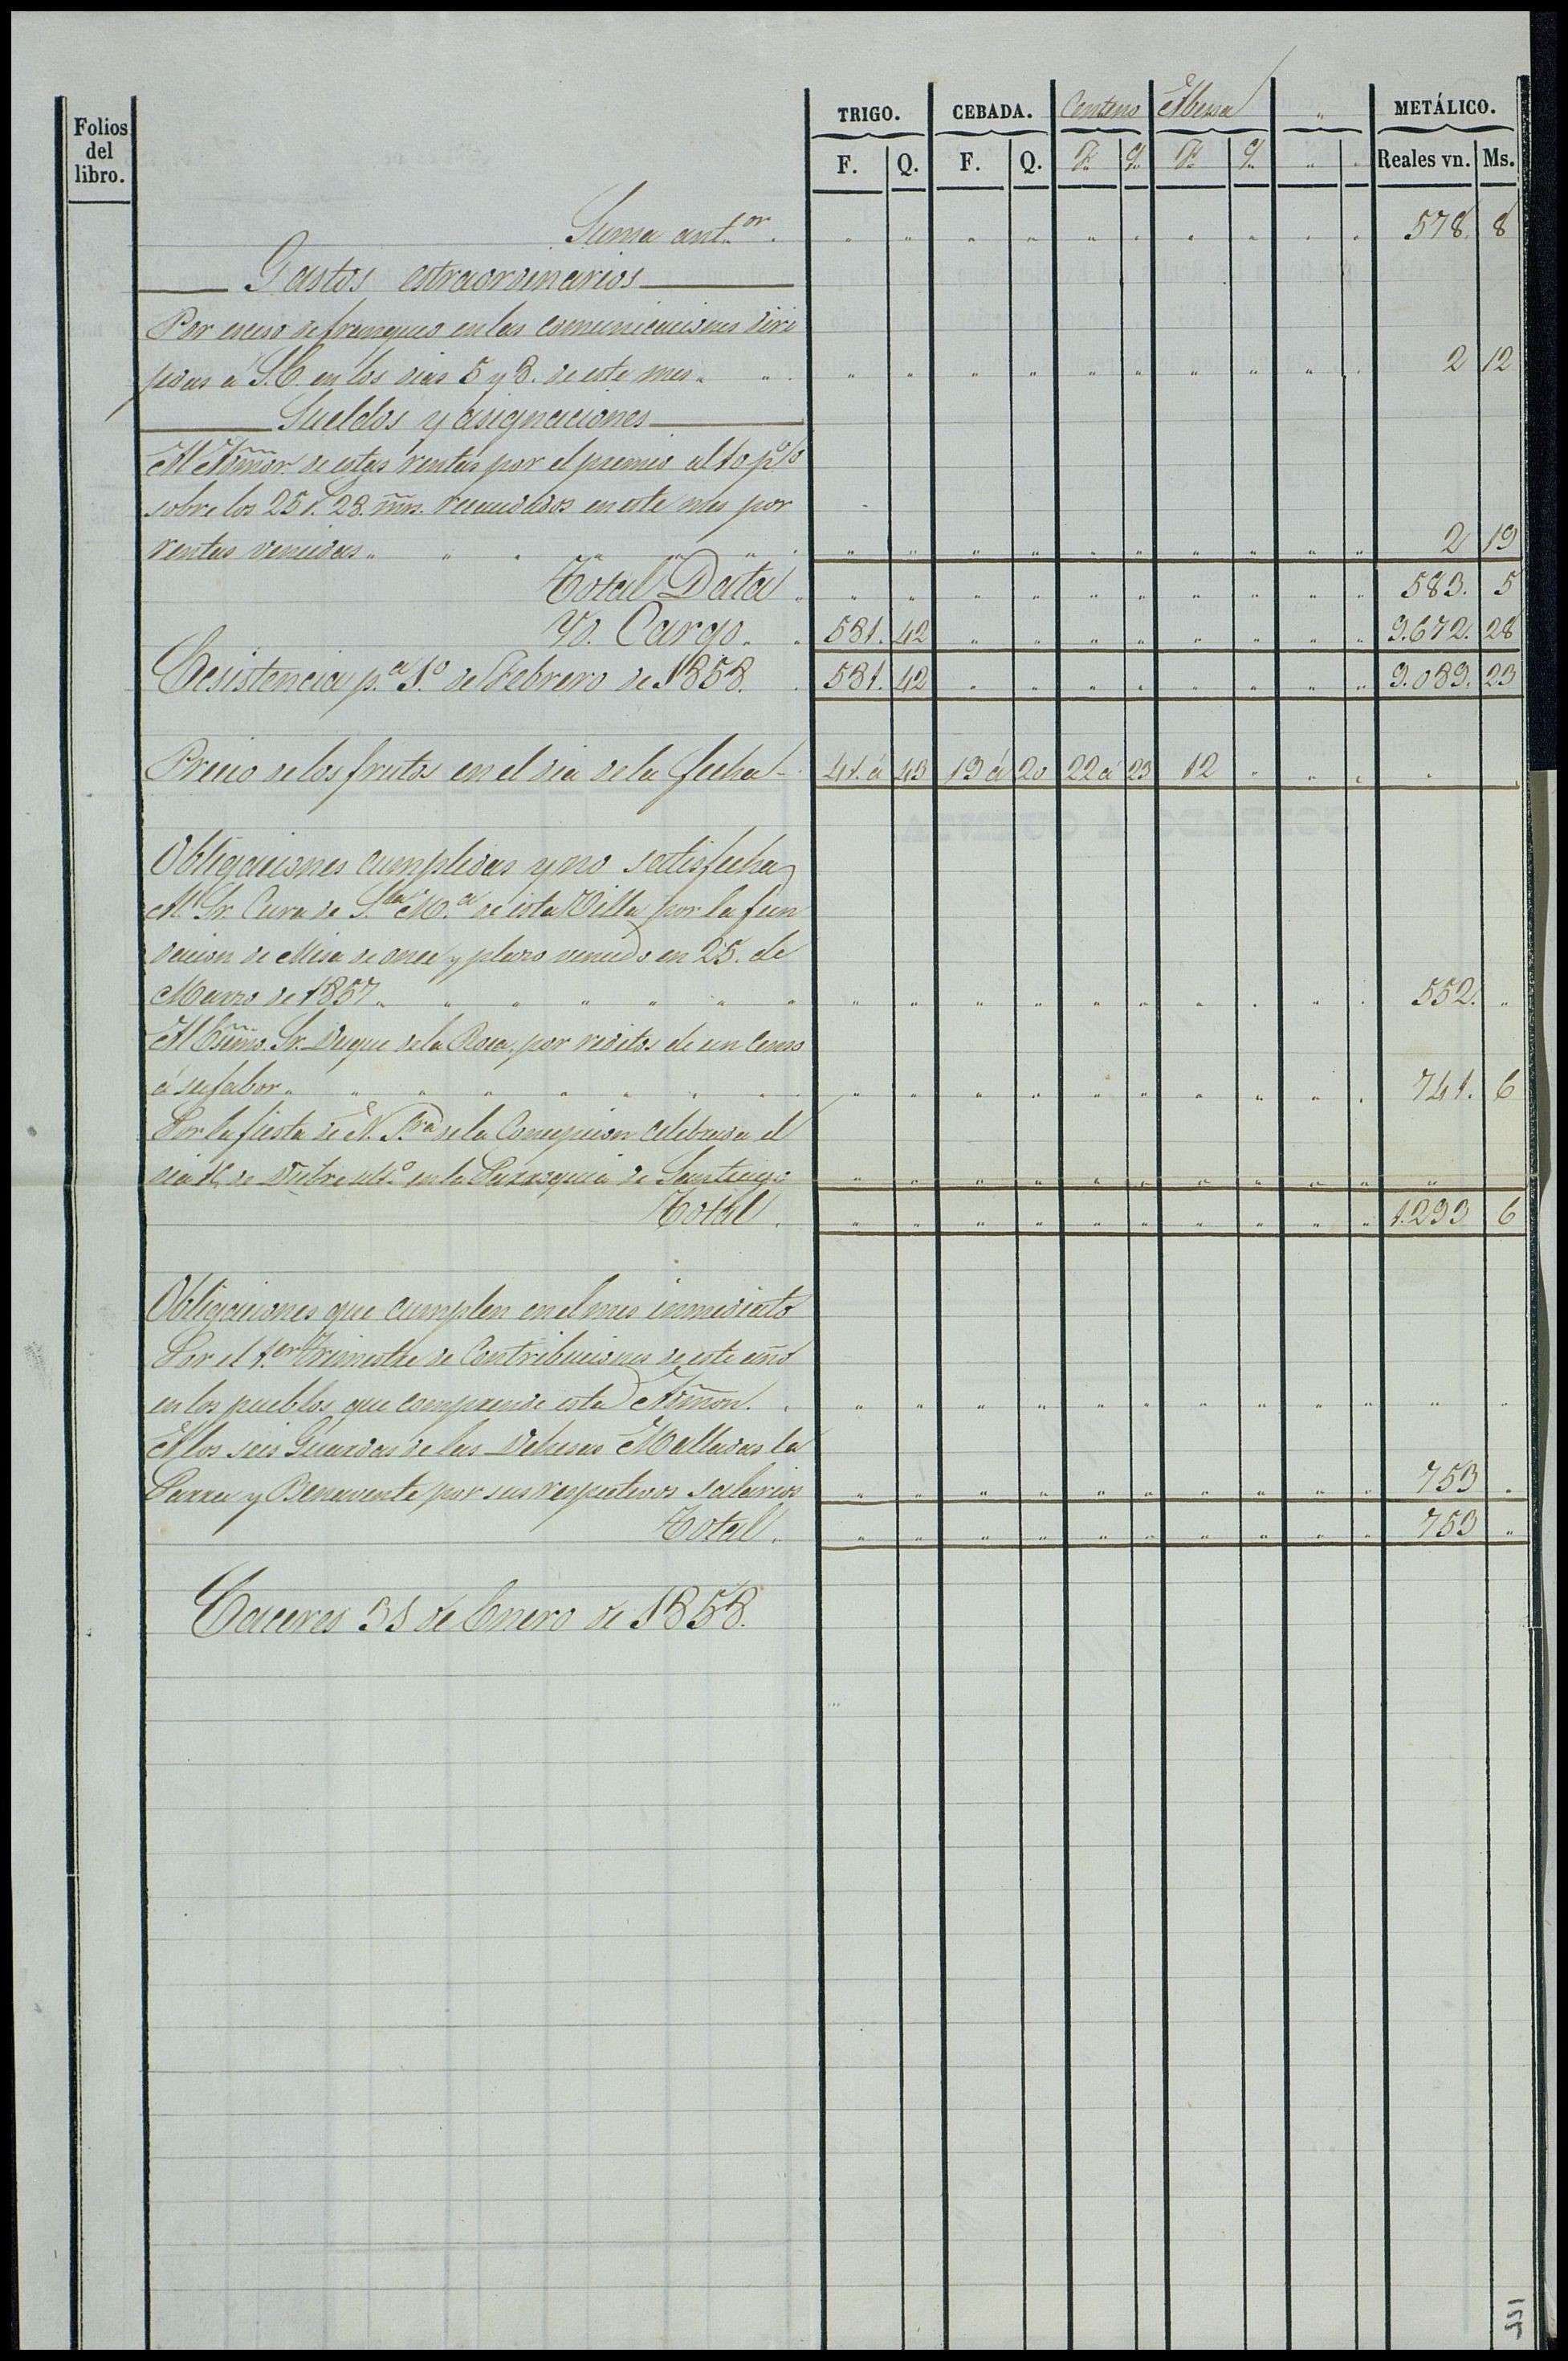 Folios del libro.
TRIGO. CEBADA. Centeno Abena " METÁLICO.
F. Q. F. Q. F. Q. F. Q. " " Reales vn. Ms.
Suma ant.or 578. 8
Gastos estraordinarios
Por esceso de franqueo en las comunicaciones diri
jidas á S.E. en los dias 5 y 8. de este mes 2 12
Sueldos y asignaciones
Al Admor. de estas rentas por el premio al 10 p%
sobre los 25 r. 28. mrs. recaudados en este mes por
rentas vencidas 2 19
Total Data 583. 5
Yd. Cargo 581. 42 9.672. 28
Ecsistencia p.a 1.o de Febrero de 1858. 581. 42 9.089. 23
Precio de los frutos en el dia de la fecha 41. á 43 19 á 20 22 á 23 12
Obligaciones cumplidas y no satisfechas
Al Sr. Cura de S.ta M.a de esta Villa por la fun
dacion de Misa de once y plazo vencido en 25. de
Marzo de 1857 552.
Al Esmo. Sr. Duque de la Roca, por reditos de un Censo
á su fabor 741. 6
Por la fiesta de N. S.ra de la Concepcion celebrada el
dia de Dicbre ult.o en la Parroquia de Santiago
Total 1.293 6
Obligaciones que cumplen en el mes inmediato
Por el 1.er Trimestre de Contribuciones de este año
en los pueblos que comprende esta Admon.
A los seis Guardas de las Dehesas Malladas la
Parra y Benavente por sus respectivos salarios 753
Total 753
Caceres 31 de Enero de 1858.